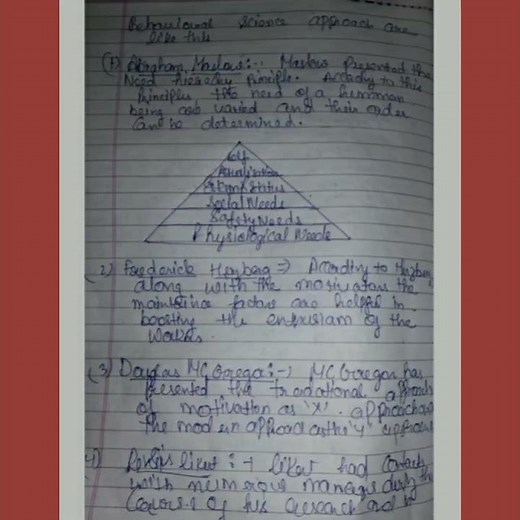 Behavioural Science approach are
like this
(1) Abraham Maslow :- Maslow presented the
Need hierarchy Principle. Accordy to this
Principles the need of a humman
being are varied and their order
can be determined.
Self
Actualization
Status
Social Needs
Safety Needs
Physiological Needs
(2) Frederick Herzberg => Accordly to Herzberg
along with the motivators the
factors are helpful in
boosting the enthusiasm of the
workers.
(3) Douglas MC Gregor :- MC Gregor has
presented the traditional approach
of motivation as 'X' approach and
the modern approach as the 'Y' approach
4) likert :- likert had contacts
with numerous manages during the
course of his research and